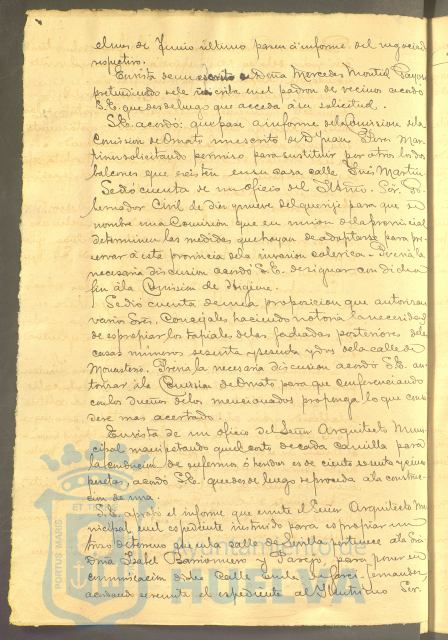 el mes de Junio ultimo pasen á informe del negociado
respectivo.
En vista de un escrito de Doña Mercedes Montiel Payan
pretendiendo se le inscriba en el padron de vecinos acordó
S.E. que desde luego que acceda á su solicitud.
S.E. acordó: que pase a informe de la Comision de la
Comision de Ornato un escrito de Dn Juan Perez Mar
tin solicitando permiso para sustituir por otros los dos
balcones que existen en su casa calle Luis Martin.
Se dió cuenta de un oficio del Iltmo. Sor. Go-
bernador Civil de diez y nueve del que rije para que se
nombre una Comision que en union de la provincial
determinen las medidas que hayan de adoptarse para pre-
servar á esta provincia de la invasion colerica. Previa la
necesaria discusion acordó S.E. designar con dicho
fin á la Comision de Higiene.
Se dió cuenta de una proposicion que autorizan
varios Sres. Concejales haciendo notoria la necesidad
de expropiar los tapiales de las fachadas posteriores de las
casas numeros sesenta y sesenta y dos de la calle de
Monasterio. Previa la necesaria discusion acordó S.E. au-
torizar á la Comision de Ornato para que conferenciando
con los dueños de los mencionados proponga lo que con-
sidere mas acertado.
En vista de un oficio del Señor Arquitecto Muni-
cipal manifestando que el costo de cada camilla para
la conduccion de enfermos ó heridos es de ciento sesenta y cinco
pesetas, acordó S.E. que desde luego se proceda a la construc-
cion de una.
S.E. aprobó el informe que emite el Señor Arquitecto Mu-
nicipal en el expediente instruido para expropiar un
trozo de terreno de una calle de Sevilla pertenece a la Sra
Doña Isabel Barrionuevo y Parejo, para poner en
comunicacion dicha calle con la de Lopez Fernandez,
acordando se remita el expediente al Ilustrisimo Sor.
PORTUS MARIS ET TERRAE
Ayuntamiento de
HUELVA